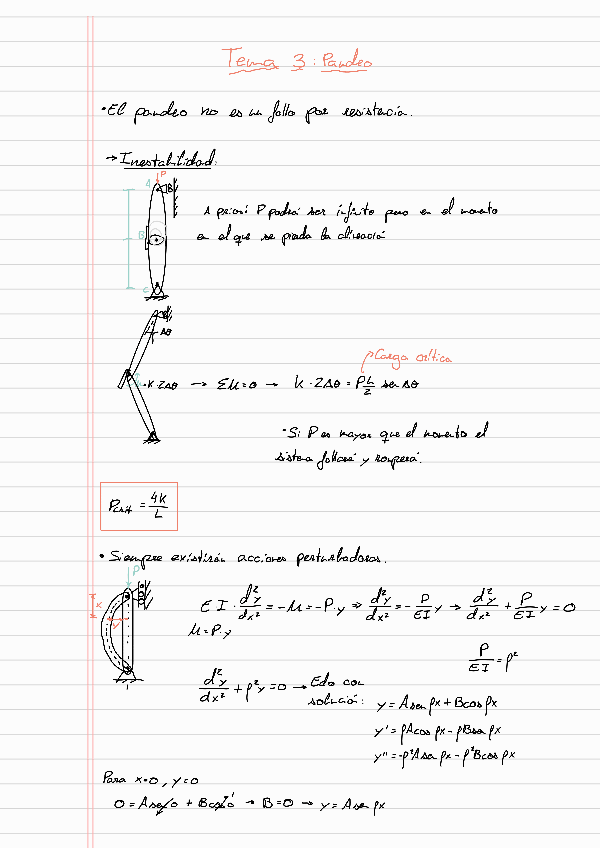 Tema 3: Pandeo
• El pandeo no es un fallo por resistencia.
→ Inestabilidad:
P
A
B
A priori P podrá ser infinito pero en el momento
B
en el que se pierda la alineación
C
Δθ
Carga crítica
K·2Δθ → ΣM=0 → K·2Δθ = PL/2 sen Δθ
• Si P es mayor que el momento el
sistema fallará y romperá.
Pcrit = 4K/L
• Siempre existirán acciones perturbadoras.
P
x
y
EI · d²y/dx² = -M = -P·y ⇒ d²y/dx² = - P/EI y → d²y/dx² + P/EI y = 0
M = P·y
P/EI = p²
d²y/dx² + p²y = 0 → Edo con
solución: y = A sen px + B cos px
y' = pA cos px - pB sen px
y'' = -p²A sen px - p²B cos px
Para x=0, y=0
0 = A sen 0 + B cos 0 → B=0 → y = A sen px